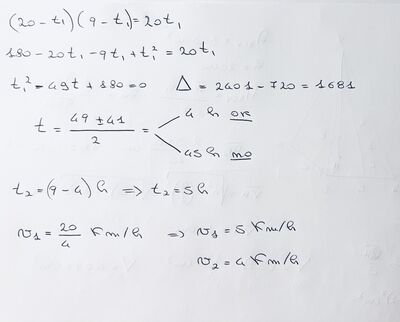 (20 - t₁)(9 - t₁) = 20t₁
180 - 20t₁ - 9t₁ + t₁² = 20t₁
t₁² - 49t + 180 = 0 Δ = 2401 - 720 = 1681
t = (49 ± 41)/2 = 4 h ore
45 h no
t₂ = (9 - 4) h ⇒ t₂ = 5 h
v₁ = 20/4 Km/h ⇒ v₁ = 5 Km/h
v₂ = 4 Km/h